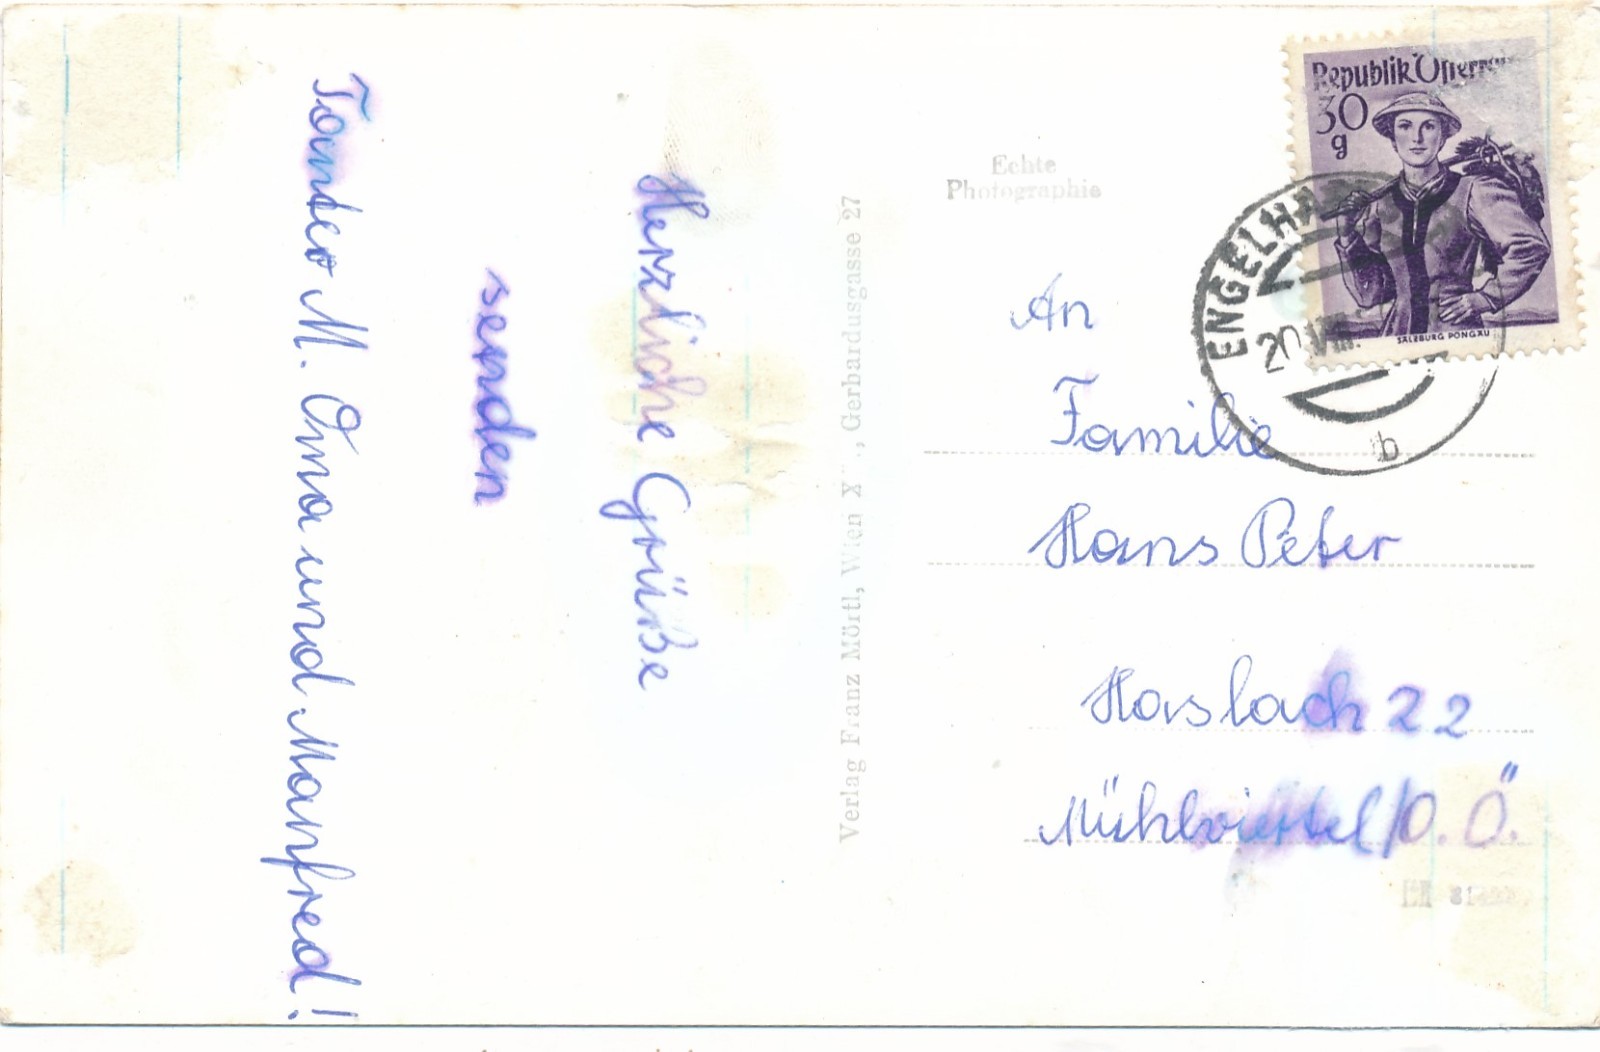 Herzliche Grüße
senden
M. Oma und Manfred!
Verlag Franz Mörtl, Wien , Gerhardusgasse 27
Echte
Photographie
Republik
30
g
SALZBURG PONGAU
20.VIII.
b
An
Familie
Hans Peter
Haslach 22
Mühlviertel/O.Ö.